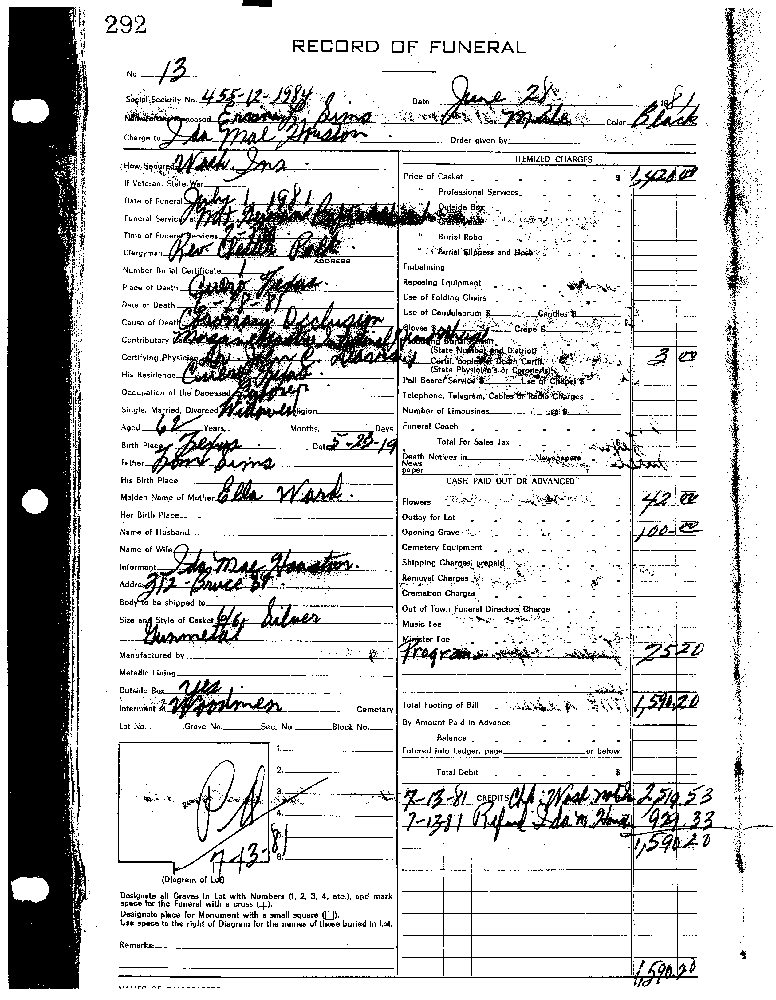 292
RECORD OF FUNERAL
No. 13
Social Security No. 455-12-1984 Date June 28 1981
Name of Deceased Sims Sex Male Color Black
Charge to Ida Mae Houston Order given by
How Secured Wash. Ins.
If Veteran, State War
Date of Funeral July 1 1981
Funeral Services at Mt.
Time of Funeral Services
Clergyman Rev.
ADDRESS
Number Burial Certificate
Place of Death Cuero Texas
Date of Death
Cause of Death Coronary Occlusion
Contributory
Certifying Physician Dr. John C.
His Residence Cuero Texas
Occupation of the Deceased
Single, Married, Divorced Religion
Aged 62 Years, Months, Days
Birth Place Texas Date 5-23-19
Father Sims
His Birth Place
Maiden Name of Mother Ella Ward
Her Birth Place
Name of Husband
Name of Wife
Informant Ida Mae Houston.
Address 312 - Bruce St.
Body to be shipped to
Size and Style of Casket 6/6 Silver
Gunmetal
Manufactured by
Metallic Lining
Outside Box Yes
Interment at Woodmen Cemetery
Lot No. Grave No. Sec. No. Block No.
1.
2.
3.
4.
Pd
7-13-81
(Diagram of Lot)
Designate all Graves in Lot with Numbers (1, 2, 3, 4, etc.), and mark
space for the Funeral with a cross (+).
Designate place for Monument with a small square (□).
Use space to the right of Diagram for the names of those buried in Lot.
Remarks
ITEMIZED CHARGES
Price of Casket $ 1,420.00
" Professional Services
" Outside Box
" Burial Robe
" Burial Slippers and Hose
Embalming
Reposing Equipment
Use of Folding Chairs
Use of Candelabrum $ Candles $
Gloves $ Crepe $
(State Number and District)
Certif. Copies of Death Certif. 3 00
(State Physician's or Coroner's)
Pall Bearer Service $ Use of Chapel $
Telephone, Telegram, Cables or Radio Charges
Number of Limousines @ $
Funeral Coach
Total For Sales Tax
Death Notices in Newspapers
News
paper
CASH PAID OUT OR ADVANCED
Flowers 42 00
Outlay for Lot
Opening Grave 100.00
Cemetery Equipment
Shipping Charges, prepaid
Removal Charges
Cremation Charges
Out of Town Funeral Directors Charge
Music Fee
Minister Fee
Programs 25 20
Total Footing of Bill 1,590.20
By Amount Paid in Advance
Balance
Entered into Ledger, page or below
Total Debit $
7-13-81 CREDITS Chk: Wash 2,519 53
7-13-81 Refund Ida M. 929 33
1,590.20
1,590.20